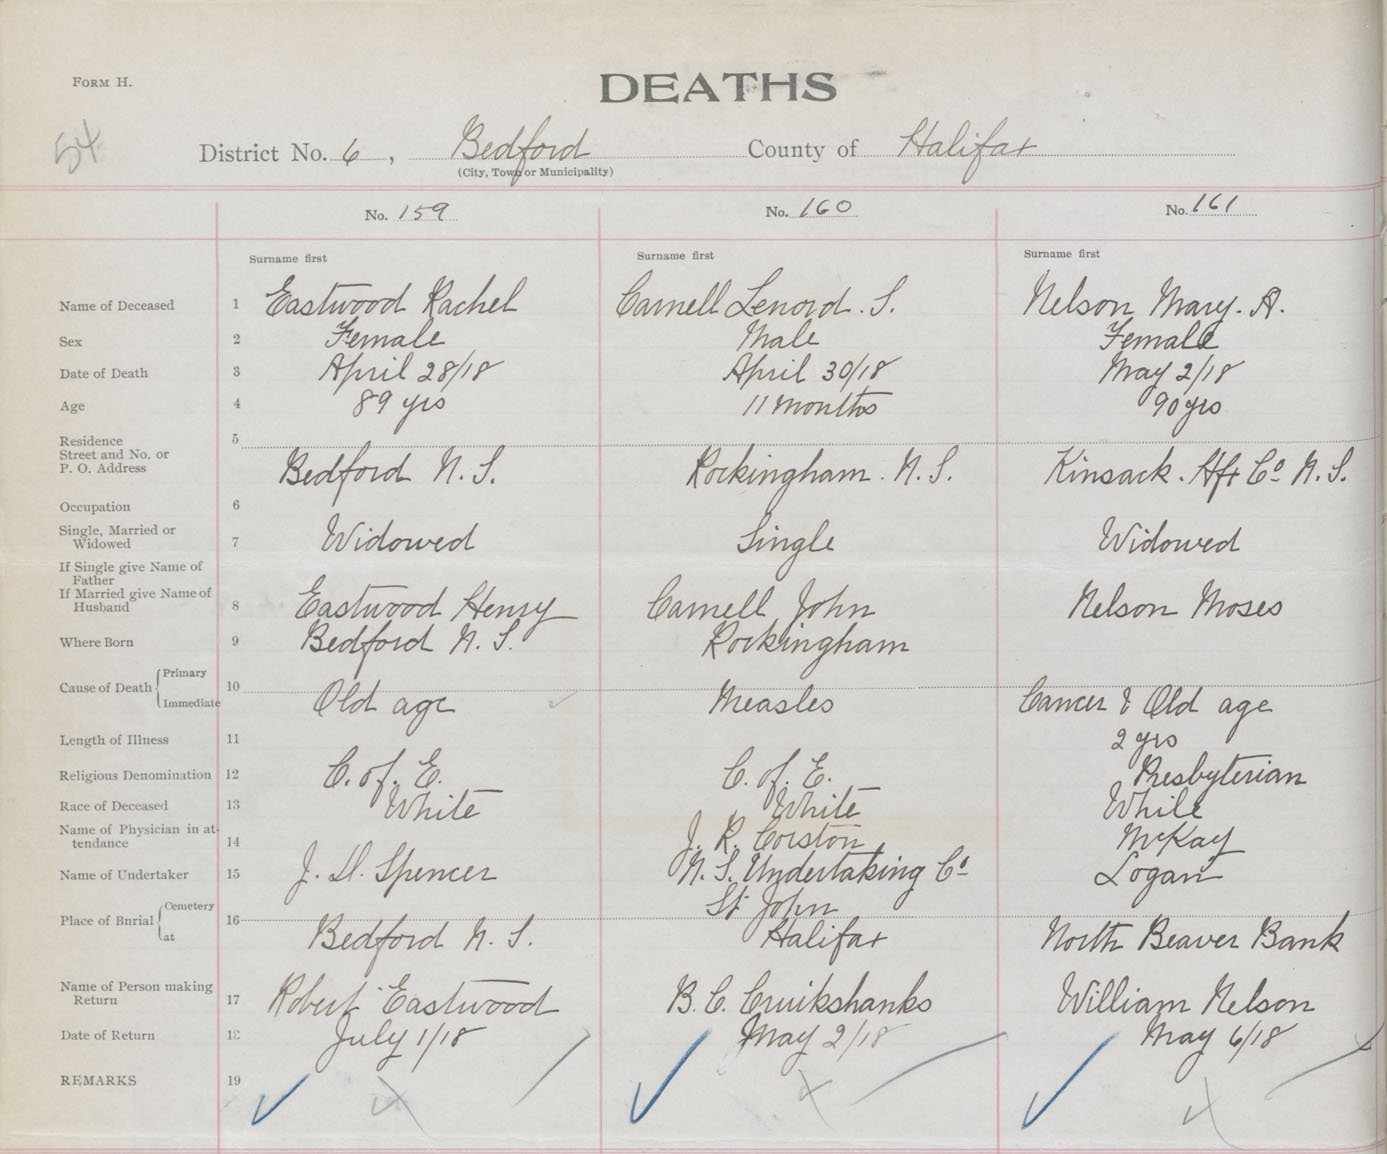 FORM H.
DEATHS
54
District No. 6, Bedford County of Halifax
(City, Town or Municipality)
No. 159 No. 160 No. 161
Surname first Surname first Surname first
Name of Deceased 1 Eastwood Rachel Carnell Lenord. S. Nelson Mary. A.
Sex 2 Female Male Female
Date of Death 3 April 28/18 April 30/18 May 2/18
Age 4 89 yrs 11 months 90 yrs
Residence 5
Street and No. or
P. O. Address Bedford N. S. Rockingham. N. S. Kinsack. Hfx Co. N. S.
Occupation 6
Single, Married or
Widowed 7 Widowed Single Widowed
If Single give Name of
Father
If Married give Name of
Husband 8 Eastwood Henry Carnell John Nelson Moses
Where Born 9 Bedford N. S. Rockingham
Cause of Death Primary 10
Immediate Old age Measles Cancer & Old age
Length of Illness 11 2 yrs
Religious Denomination 12 C. of. E. C. of. E. Presbyterian
Race of Deceased 13 White White White
Name of Physician in at-
tendance 14 J. R. Corston McKay
Name of Undertaker 15 J. H. Spencer N. S. Undertaking Co. Logan
Place of Burial Cemetery 16 St John
at Bedford N. S. Halifax North Beaver Bank
Name of Person making
Return 17 Robert Eastwood B. C. Cruikshanks William Nelson
Date of Return 18 July 1/18 May 2/18 May 6/18
REMARKS 19